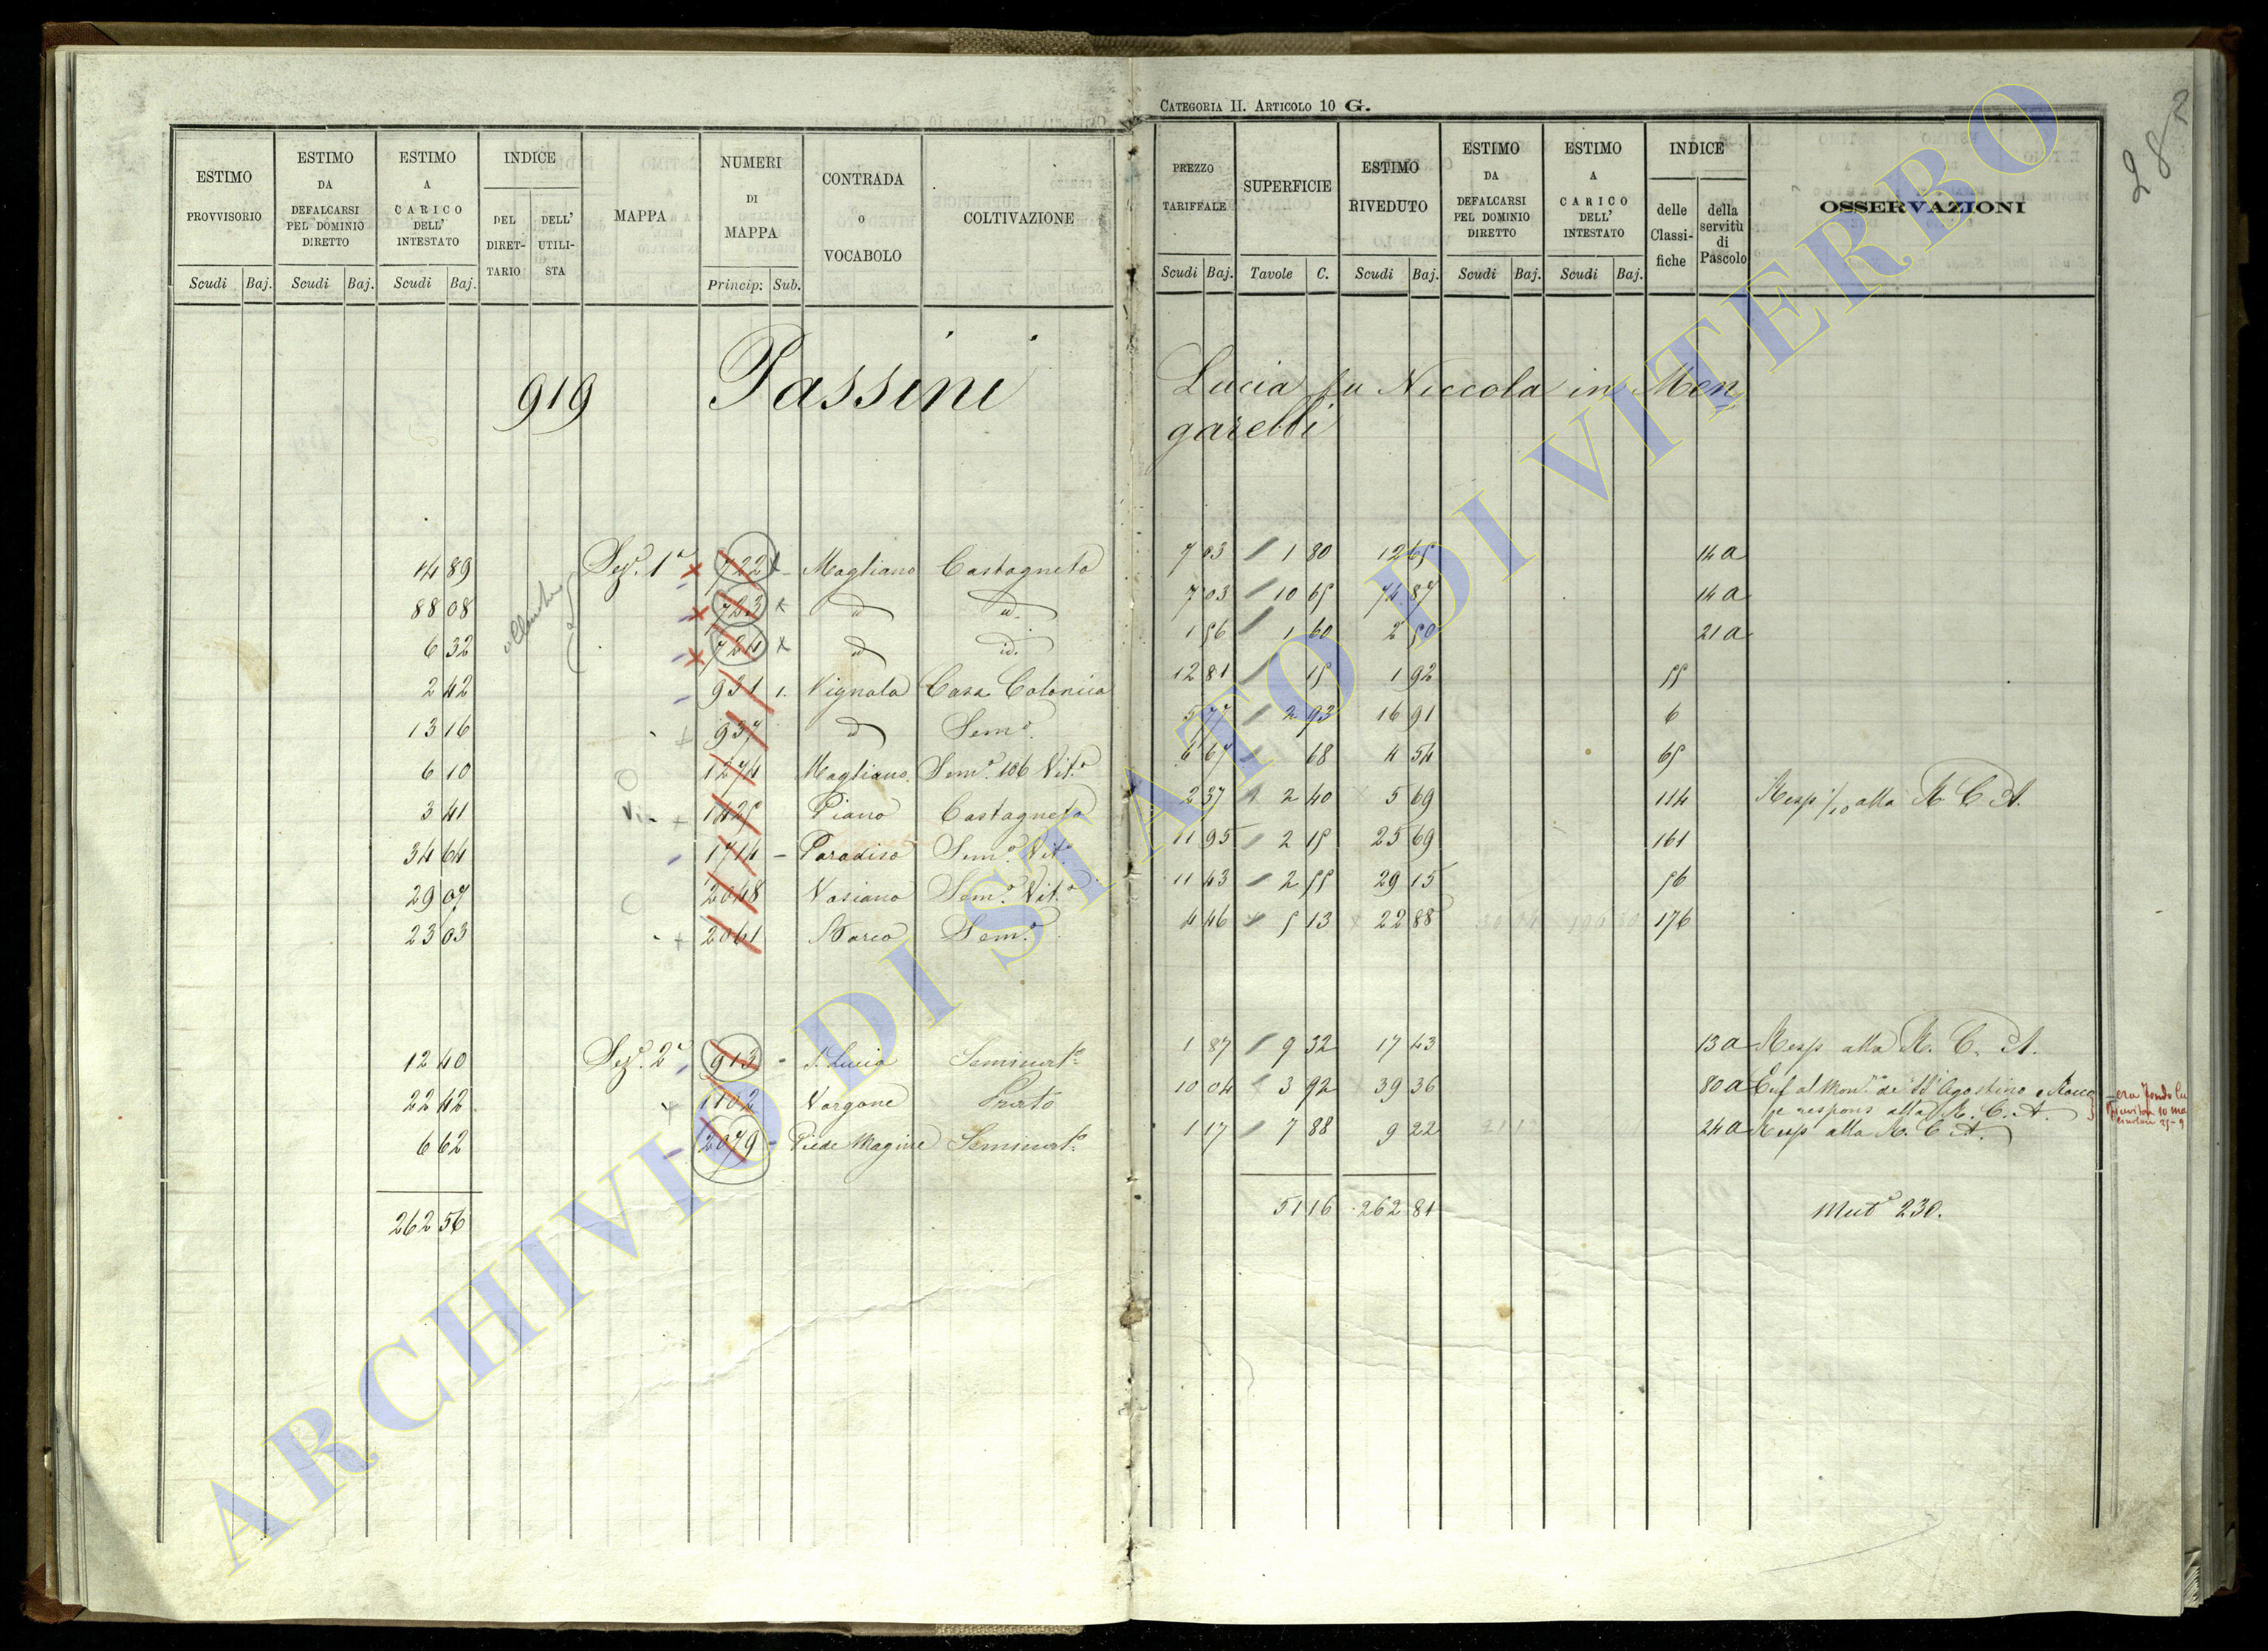 CATEGORIA II. ARTICOLO 10 G.
28
ESTIMO PROVVISORIO Scudi Baj.
ESTIMO DA DEFALCARSI PEL DOMINIO DIRETTO Scudi Baj.
ESTIMO A CARICO DELL' INTESTATO Scudi Baj.
INDICE DEL DIRET-TARIO DELL' UTILI-STA
MAPPA
NUMERI DI MAPPA Princip: Sub.
CONTRADA o VOCABOLO
COLTIVAZIONE
PREZZO TARIFFALE Scudi Baj.
SUPERFICIE Tavole C.
ESTIMO RIVEDUTO Scudi Baj.
ESTIMO DA DEFALCARSI PEL DOMINIO DIRETTO Scudi Baj.
ESTIMO A CARICO DELL' INTESTATO Scudi Baj.
INDICE delle Classi-fiche della servitù di Pascolo
OSSERVAZIONI
919 Passini Lucia fu Niccola in Men
garelli
14 89 Sez. 1a 722 Magliano Castagneto 7 03 1 80 12 65 14 a
88 08 723 id id. 7 03 10 65 74 87 14 a
6 32 724 id id. 1 56 1 60 2 50 21 a
2 42 931 1. Vignola Casa Colonica 12 81 15 1 92 55
13 16 937 id Semo. 5 77 2 93 16 91 6
6 10 1274 Magliano Semo. Vito. 6 67 68 4 54 65
3 41 1425 Piano Castagneto 2 37 2 40 5 69 114 Resp 1/10 alla R C A.
34 64 1714 Paradiso Semo. Vito. 11 95 2 15 25 69 161
29 07 2048 Vasiano Semo. Vito. 11 43 2 55 29 15 56
23 03 2061 Semo. 4 46 5 13 22 88 176
12 40 Sez. 2a 913 S. Lucia Seminato. 1 87 9 32 17 43 13 a Resp alla R. C. A.
22 42 1102 Vargone Prato 10 04 3 92 39 36 80 a Enf al Mon. de SS Agostino e Rocco
e respons alla R. C. A.
6 62 2079 Piede Magine Seminato. 1 17 7 88 9 22 24 a Resp alla R. C. A.
262 56 51 16 262 81 Muta 230.
ARCHIVIO DI STATO DI VITERBO